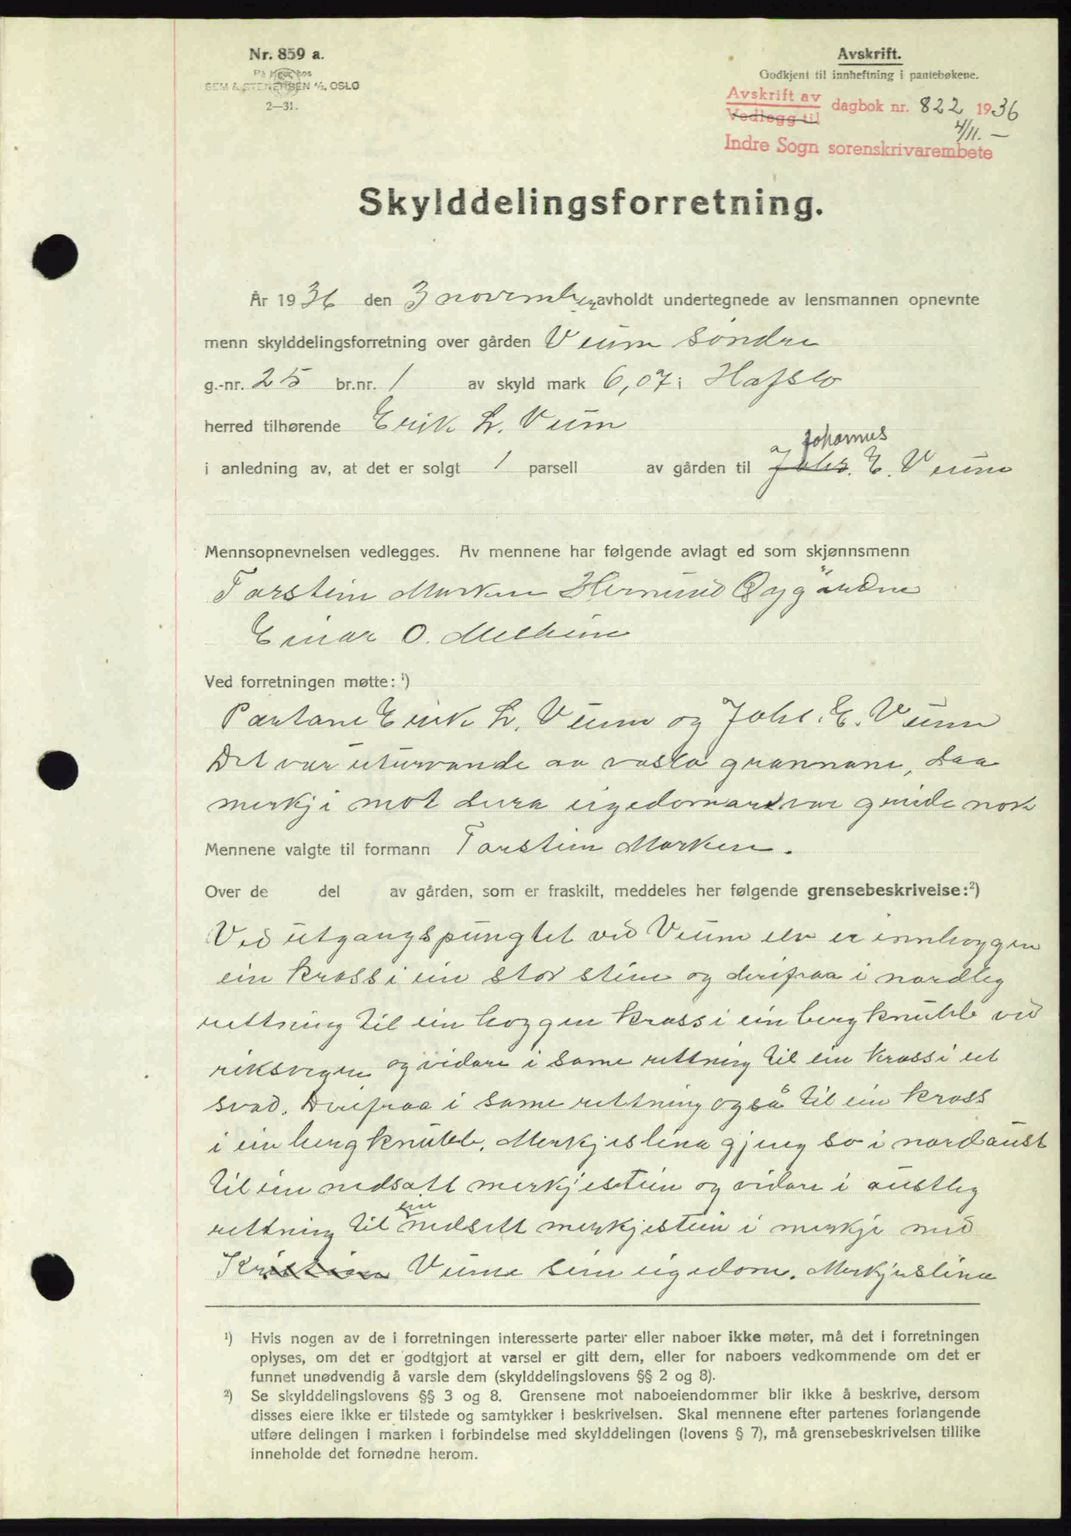 Nr. 859 a.
På lager hos
SEM & STENERSEN A/S, OSLO
2—31.
Avskrift.
Godkjent til innheftning i pantebøkene.
Avskrift av
Vedlegg til
dagbok nr. 822 1936
4/11. –
Indre Sogn sorenskrivarembete
Skylddelingsforretning.
År 1936 den 3 november avholdt undertegnede av lensmannen opnevnte
menn skylddelingsforretning over gården Veum søndre
g.-nr. 25 br.nr. 1 av skyld mark 6,07 i Hafslo
herred tilhørende Erik L. Veum
Johannes
i anledning av, at det er solgt 1 parsell av gården til Johs. E. Veum
Mennsopnevnelsen vedlegges. Av mennene har følgende avlagt ed som skjønnsmenn
Torstein Morken Hermund Øygårdne
Einar O. Melheim
Ved forretningen møtte: ¹)
Partane Erik L. Veum og Johs. E. Veum
Det var uturvande aa varsla grannane, daa
merkji mot deira eigedomar var greide nok
Mennene valgte til formann Torstein Morken.
Over de del av gården, som er fraskilt, meddeles her følgende grensebeskrivelse: ²)
Ved utgangspungtet ved Veum elv er innhoggen
ein kross i ein stor stein og derifraa i nordleg
rettning til ein hoggen kross i ein bergknubb ved
riksvegen og vidare i same rettning til ein kross i eit
svad. Derifraa i same rettning også til ein kross
i ein bergknubb. Merkjeslina gjeng so i nordaust
til ein nedsatt merkjestein og vidare i austleg
ein
rettning til nedsett merkjestein i merkje med
Kristian Veum sin eigedom. Merkjeslina
¹) Hvis nogen av de i forretningen interesserte parter eller naboer ikke møter, må det i forretningen
oplyses, om det er godtgjort at varsel er gitt dem, eller for naboers vedkommende om det er
funnet unødvendig å varsle dem (skylddelingslovens §§ 2 og 8).
²) Se skylddelingslovens §§ 3 og 8. Grensene mot naboeiendommer blir ikke å beskrive, dersom
disses eiere ikke er tilstede og samtykker i beskrivelsen. Skal mennene efter partenes forlangende
utføre delingen i marken i forbindelse med skylddelingen (lovens § 7), må grensebeskrivelsen tillike
inneholde det fornødne herom.